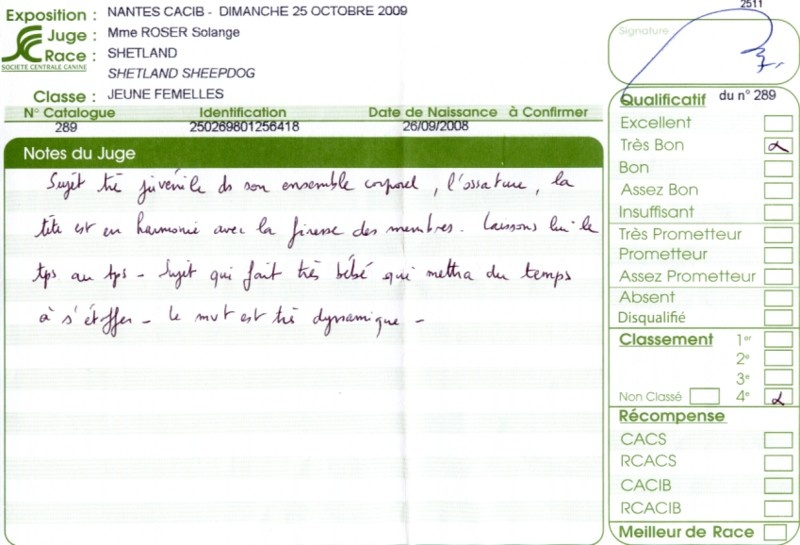 Exposition : NANTES CACIB - DIMANCHE 25 OCTOBRE 2009
Juge : Mme ROSER Solange
Race : SHETLAND
SOCIETE CENTRALE CANINE
SHETLAND SHEEPDOG
Classe : JEUNE FEMELLES
N° Catalogue Identification Date de Naissance à Confirmer
289 250269801256418 26/09/2008
Notes du Juge
Sujet trè juvénile ds son ensemble corporel, l'ossature, la
tête est en harmonie avec la finesse des membres. Laissons lui le
tps au tps - Sujet qui fait très bébé qui mettra du temps
à s'étoffer - Le mvt est trè dynamique -
2511
Signature
Qualificatif du n° 289
Excellent
Très Bon
Bon
Assez Bon
Insuffisant
Très Prometteur
Prometteur
Assez Prometteur
Absent
Disqualifié
Classement 1er
2e
3e
Non Classé 4e
Récompense
CACS
RCACS
CACIB
RCACIB
Meilleur de Race